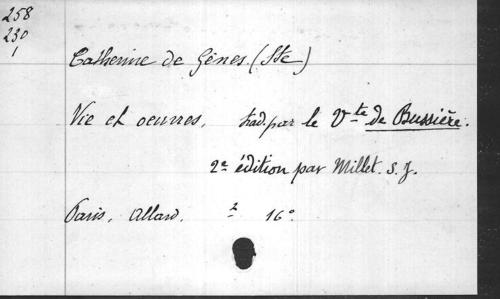 258
230
1
Catherine de Gênes. (Ste)
Vie et oeuvres, trad. par le Vte de Bussière.
2e édition par Millet. S. J.
Paris, Allard. 16°